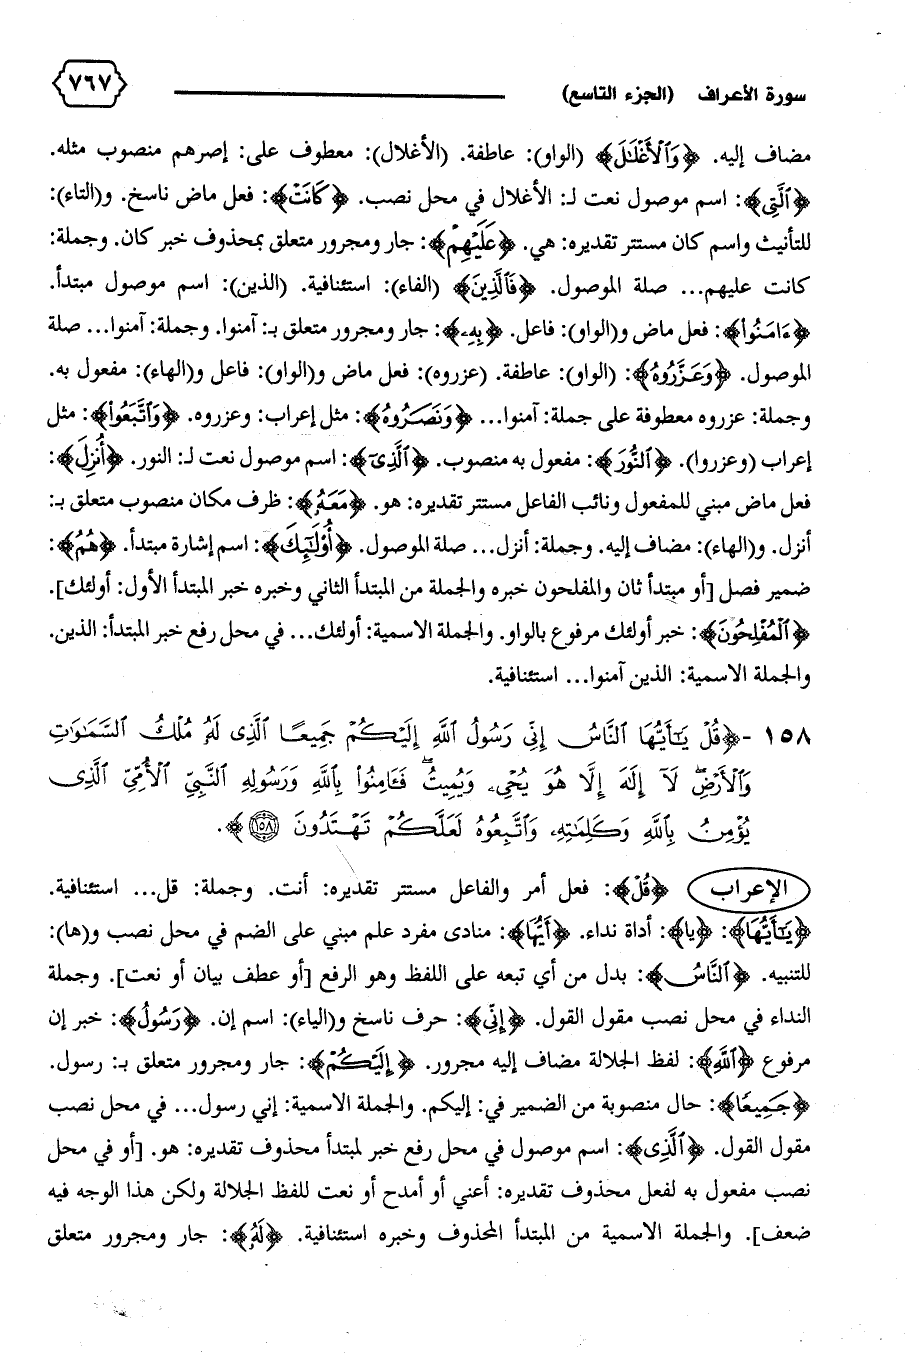 سورة الأعراف (الجزء التاسع) ٧٦٧
مضاف إليه. ﴿وَٱلْأَغْلَٰلَ﴾ (الواو): عاطفة. (الأغلال): معطوف على: إصرهم منصوب مثله.
﴿ٱلَّتِي﴾: اسم موصول نعت لـ: الأغلال في محل نصب. ﴿كَانَتْ﴾: فعل ماض ناسخ. و(التاء):
للتأنيث واسم كان مستتر تقديره: هي. ﴿عَلَيْهِمْ﴾: جار ومجرور متعلق بمحذوف خبر كان. وجملة:
كانت عليهم... صلة الموصول. ﴿فَٱلَّذِينَ﴾ (الفاء): استئنافية. (الذين): اسم موصول مبتدأ.
﴿ءَامَنُوا۟﴾: فعل ماض و(الواو): فاعل. ﴿بِهِۦ﴾: جار ومجرور متعلق بـ: آمنوا. وجملة: آمنوا... صلة
الموصول. ﴿وَعَزَّرُوهُ﴾: (الواو): عاطفة. (عزروه): فعل ماض و(الواو): فاعل و(الهاء): مفعول به.
وجملة: عزروه معطوفة على جملة: آمنوا... ﴿وَنَصَرُوهُ﴾: مثل إعراب: وعزروه. ﴿وَٱتَّبَعُوا۟﴾: مثل
إعراب (وعزروا). ﴿ٱلنُّورَ﴾: مفعول به منصوب. ﴿ٱلَّذِىٓ﴾: اسم موصول نعت لـ: النور. ﴿أُنزِلَ﴾:
فعل ماض مبني للمفعول ونائب الفاعل مستتر تقديره: هو. ﴿مَعَهُۥ﴾: ظرف مكان منصوب متعلق بـ:
أنزل. و(الهاء): مضاف إليه. وجملة: أنزل... صلة الموصول. ﴿أُو۟لَٰٓئِكَ﴾: اسم إشارة مبتدأ. ﴿هُمُ﴾:
ضمير فصل [أو مبتدأ ثان والمفلحون خبره والجملة من المبتدأ الثاني وخبره خبر المبتدأ الأول: أولئك].
﴿ٱلْمُفْلِحُونَ﴾: خبر أولئك مرفوع بالواو. والجملة الاسمية: أولئك... في محل رفع خبر المبتدأ: الذين.
والجملة الاسمية: الذين آمنوا... استئنافية.
١٥٨ -﴿قُلْ يَٰٓأَيُّهَا ٱلنَّاسُ إِنِّى رَسُولُ ٱللَّهِ إِلَيْكُمْ جَمِيعًا ٱلَّذِى لَهُۥ مُلْكُ ٱلسَّمَٰوَٰتِ
وَٱلْأَرْضِۖ لَآ إِلَٰهَ إِلَّا هُوَ يُحْىِۦ وَيُمِيتُۖ فَـَٔامِنُوا۟ بِٱللَّهِ وَرَسُولِهِ ٱلنَّبِىِّ ٱلْأُمِّىِّ ٱلَّذِى
يُؤْمِنُ بِٱللَّهِ وَكَلِمَٰتِهِۦ وَٱتَّبِعُوهُ لَعَلَّكُمْ تَهْتَدُونَ ١٥٨﴾.
الإعراب ﴿قُلْ﴾: فعل أمر والفاعل مستتر تقديره: أنت. وجملة: قل... استئنافية.
﴿يَٰٓأَيُّهَا﴾: ﴿يا﴾: أداة نداء. ﴿أَيُّهَا﴾: منادى مفرد علم مبني على الضم في محل نصب و(ها):
للتنبيه. ﴿ٱلنَّاسُ﴾: بدل من أي تبعه على اللفظ وهو الرفع [أو عطف بيان أو نعت]. وجملة
النداء في محل نصب مقول القول. ﴿إِنِّى﴾: حرف ناسخ و(الياء): اسم إن. ﴿رَسُولُ﴾: خبر إن
مرفوع ﴿ٱللَّهِ﴾: لفظ الجلالة مضاف إليه مجرور. ﴿إِلَيْكُمْ﴾: جار ومجرور متعلق بـ: رسول.
﴿جَمِيعًا﴾: حال منصوبة من الضمير في: إليكم. والجملة الاسمية: إني رسول... في محل نصب
مقول القول. ﴿ٱلَّذِى﴾: اسم موصول في محل رفع خبر لمبتدأ محذوف تقديره: هو. [أو في محل
نصب مفعول به لفعل محذوف تقديره: أعني أو أمدح أو نعت للفظ الجلالة ولكن هذا الوجه فيه
ضعف]. والجملة الاسمية من المبتدأ المحذوف وخبره استئنافية. ﴿لَهُۥ﴾: جار ومجرور متعلق